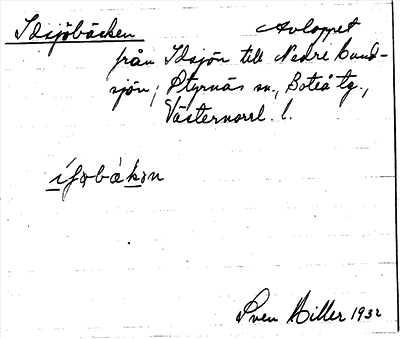 Idsjöbäcken Avloppet
från Idsjön till Nedre Lund-
sjön, Styrnäs sn., Boteå tg.,
Västernorrl. l.
Sven Hiller 1932